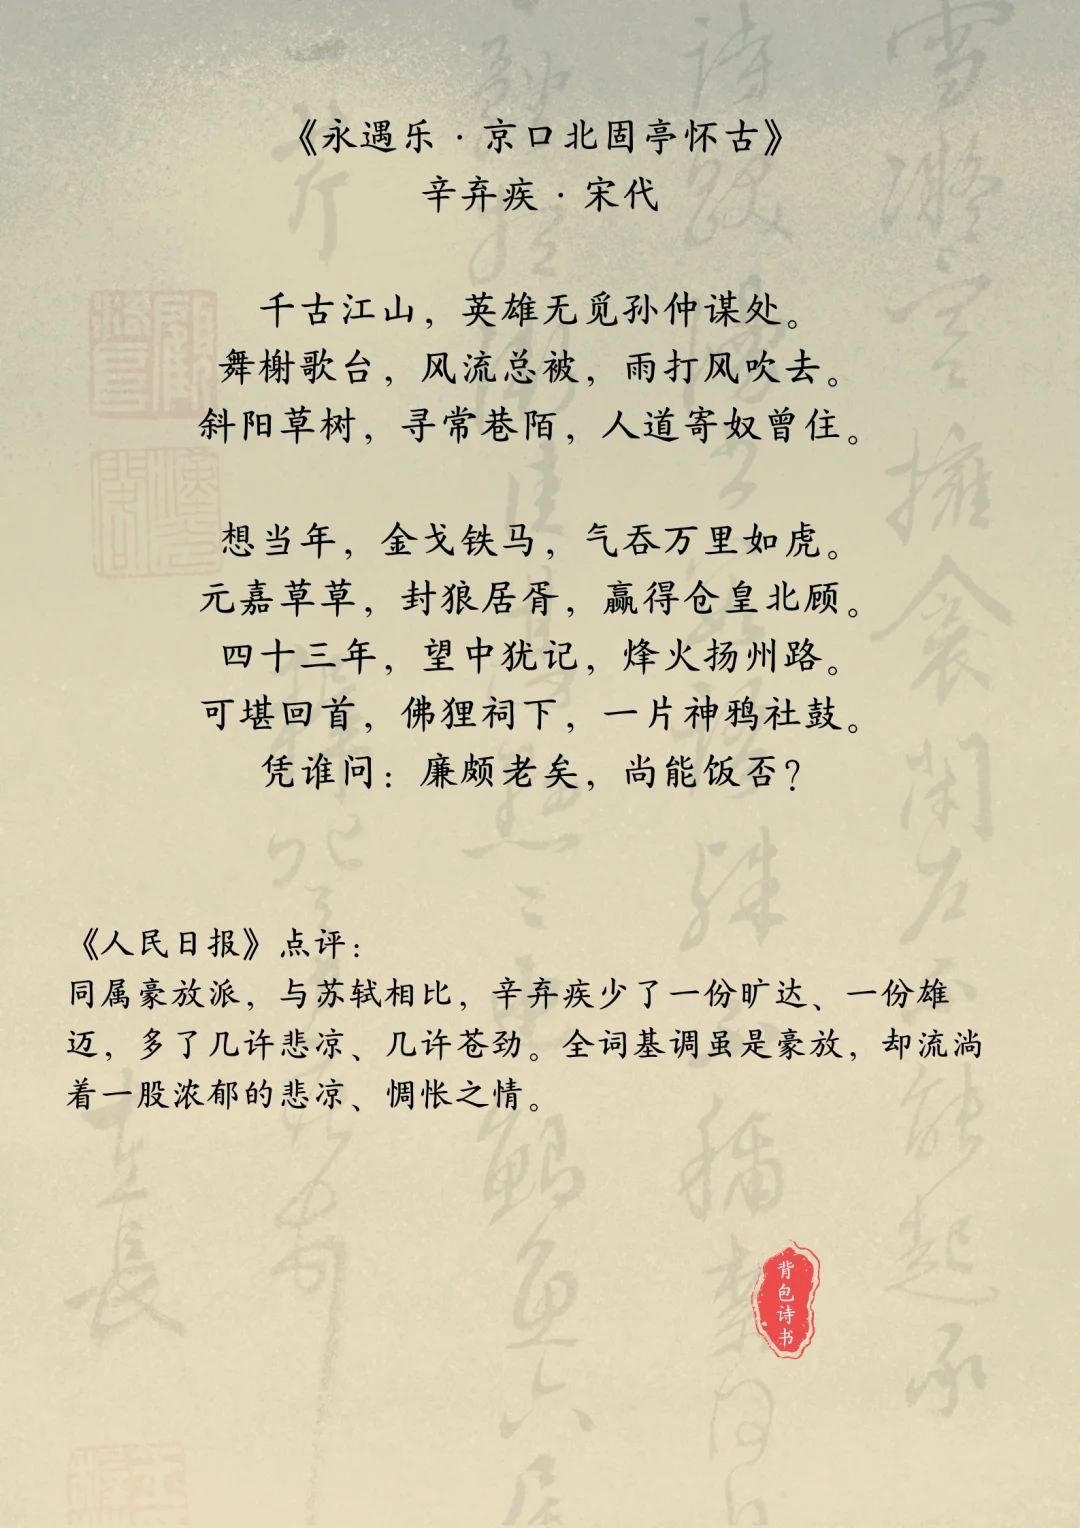 《永遇乐·京口北固亭怀古》
辛弃疾·宋代
千古江山，英雄无觅孙仲谋处。
舞榭歌台，风流总被，雨打风吹去。
斜阳草树，寻常巷陌，人道寄奴曾住。
想当年，金戈铁马，气吞万里如虎。
元嘉草草，封狼居胥，赢得仓皇北顾。
四十三年，望中犹记，烽火扬州路。
可堪回首，佛狸祠下，一片神鸦社鼓。
凭谁问：廉颇老矣，尚能饭否？
《人民日报》点评：
同属豪放派，与苏轼相比，辛弃疾少了一份旷达、一份雄
迈，多了几许悲凉、几许苍劲。全词基调虽是豪放，却流淌
着一股浓郁的悲凉、惆怅之情。
背包诗书